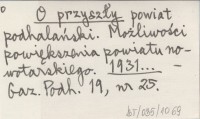 O przyszły powiat
podhalański. Możliwości
powiększenia powiatu no-
wotarskiego. 1931... -
Gaz. Podh. 19, nr 25.